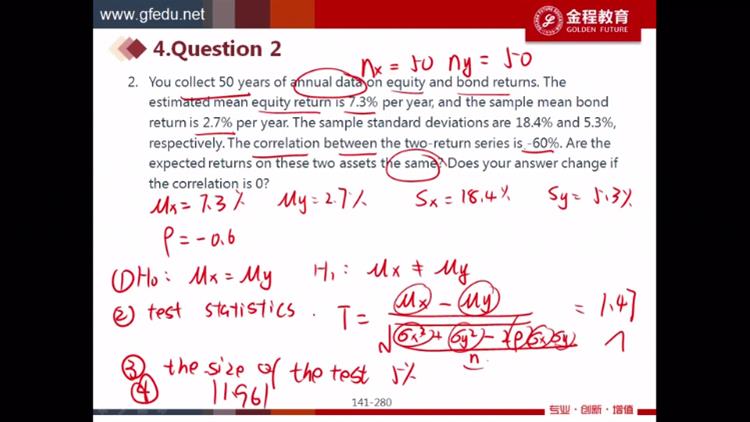 www.gfedu.net
金程教育
GOLDEN FUTURE
4.Question 2
nx = 50 ny = 50
2. You collect 50 years of annual data on equity and bond returns. The
estimated mean equity return is 7.3% per year, and the sample mean bond
return is 2.7% per year. The sample standard deviations are 18.4% and 5.3%,
respectively. The correlation between the two-return series is -60%. Are the
expected returns on these two assets the same? Does your answer change if
the correlation is 0?
μx = 7.3% μy = 2.7% Sx = 18.4% Sy = 5.3%
ρ = -0.6
① H0: μx = μy H1: μx ≠ μy
② test statistics. T = (μx - μy) / √((σx² + σy² - 2ρσxσy) / n) = 1.47
③ the size of the test 5%
④ |1.96|
141-280
专业·创新·增值